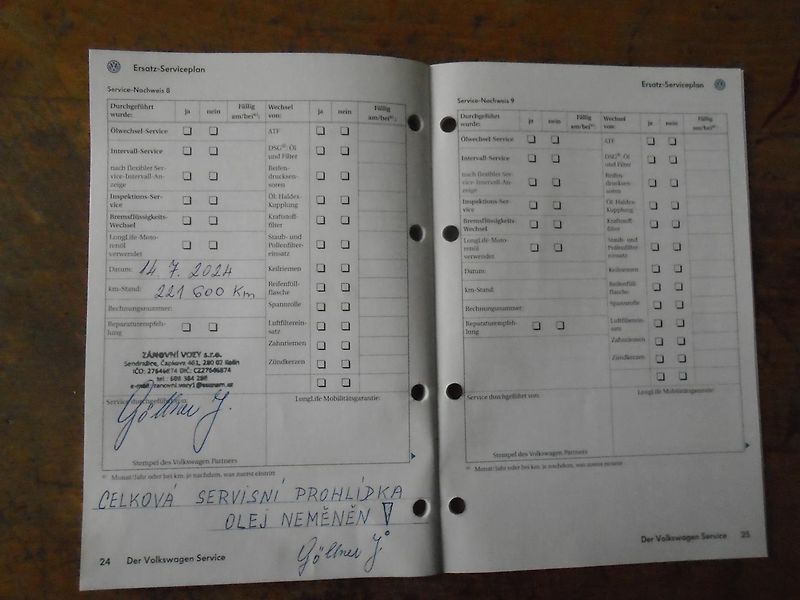 Ersatz-Serviceplan
Service-Nachweis 8
Durchgeführt wurde: ja nein Fällig am/bei*⁾: Wechsel von: ja nein Fällig am/bei*⁾:
Ölwechsel-Service ATF
Intervall-Service DSG®: Öl und Filter
nach flexibler Service-Intervall-Anzeige Reifendrucksensoren
Inspektions-Service Öl: Haldex-Kupplung
Bremsflüssigkeits-Wechsel Kraftstofffilter
LongLife-Motorenöl verwendet Staub- und Pollenfiltereinsatz
Datum: 14. 7. 2024 Keilriemen
km-Stand: 221 600 Km Reifenfüllflasche
Rechnungsnummer: Spannrolle
Reparaturempfehlung Luftfiltereinsatz
Zahnriemen
Zündkerzen
ZÁNOVNÍ VOZY s.r.o.
Sendražice, Čapkova 461, 280 02 Kolín
IČO: 27646874 DIČ: CZ27646874
tel.: 608 384 288
Service durchgeführt von: LongLife Mobilitätsgarantie:
Göllner J.
Stempel des Volkswagen Partners
*⁾ Monat/Jahr oder bei km, je nachdem, was zuerst eintritt
CELKOVÁ SERVISNÍ PROHLÍDKA
OLEJ NEMĚNĚN!
Göllner J.
24 Der Volkswagen Service
Ersatz-Serviceplan
Service-Nachweis 9
Durchgeführt wurde: ja nein Fällig am/bei*⁾: Wechsel von: ja nein Fällig am/bei*⁾:
Ölwechsel-Service ATF
Intervall-Service DSG®: Öl und Filter
nach flexibler Service-Intervall-Anzeige Reifendrucksensoren
Inspektions-Service Öl: Haldex-Kupplung
Bremsflüssigkeits-Wechsel Kraftstofffilter
LongLife-Motorenöl verwendet Staub- und Pollenfiltereinsatz
Datum: Keilriemen
km-Stand: Reifenfüllflasche
Rechnungsnummer: Spannrolle
Reparaturempfehlung Luftfiltereinsatz
Zahnriemen
Zündkerzen
Service durchgeführt von: LongLife Mobilitätsgarantie:
Stempel des Volkswagen Partners
*⁾ Monat/Jahr oder bei km, je nachdem, was zuerst eintritt
Der Volkswagen Service 25